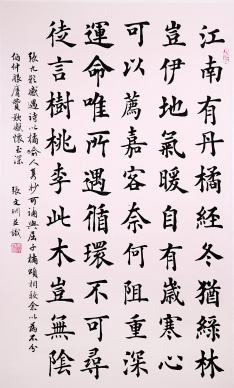 江南有丹橘經冬猶綠林
豈伊地氣暖自有歲寒心
可以薦嘉客奈何阻重深
運命唯所遇循環不可尋
徒言樹桃李此木豈無陰
張九齡感遇詩以橘喻人妙可誦與屈子橘頌相敵余以為不分
伯仲服膺贊歎感懷至深
張文並識